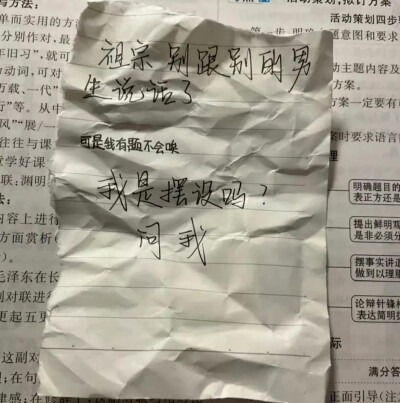 祖宗 别跟别的男
生说话了
可是我有题不会唉
我是摆设吗？
问我
写方法：
单而实用的方
分别作对，最
年旧习”，就可
动动词，可对
万载、一代”
”等。从中
风”“展/一
往往与长
意学好课
联；渊明
法：
内容上进行
方面赏析（
毛泽东在长
副对联进行
更起五更
这副对
活动策划，拟订方案
活动策划四步
意图和要求
动主题内容及
方案。
案一定要有
案时要求语言
理
明确题目的
表正方还是
提出鲜明观
是非必须分
摆事实讲道
做到以理服
论辩针锋相
表达简明扼
际
满分答
正面引导(注